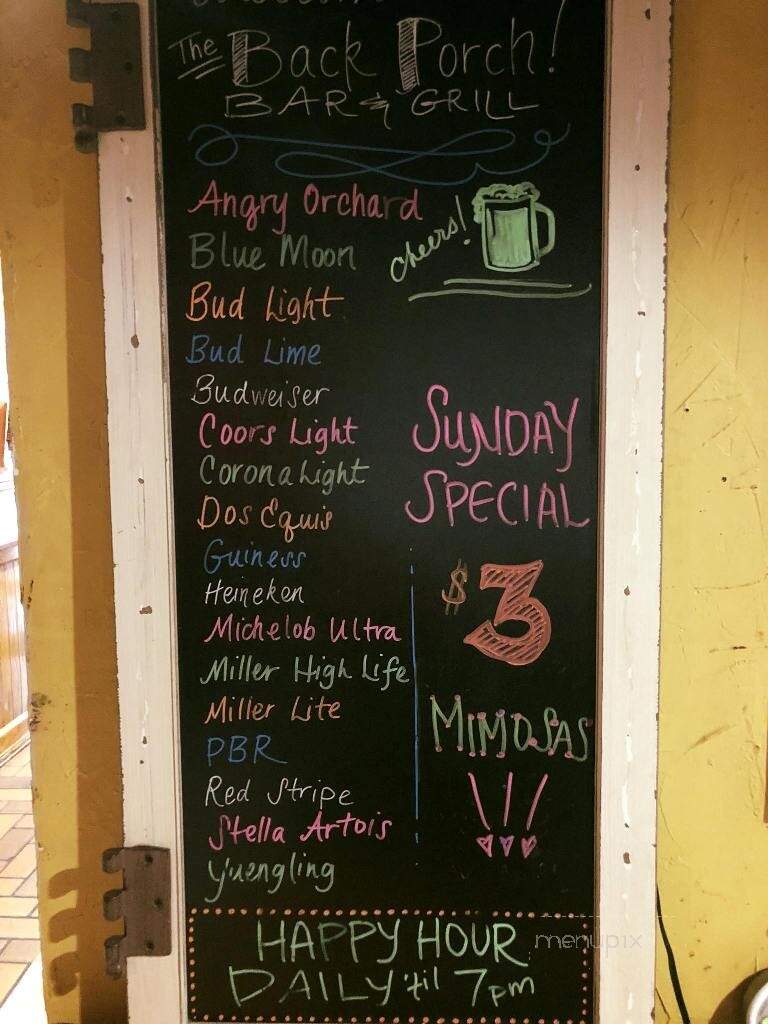 The Back Porch!
BAR & GRILL
Angry Orchard
Blue Moon
cheers!
Bud Light
Bud Lime
Budweiser
Coors Light
Corona Light
Dos Equis
Guiness
Heineken
Michelob Ultra
Miller High Life
Miller Lite
PBR
Red Stripe
Stella Artois
Yuengling
SUNDAY
SPECIAL
$3
MIMOSAS
HAPPY HOUR
DAILY 'til 7pm
menupix